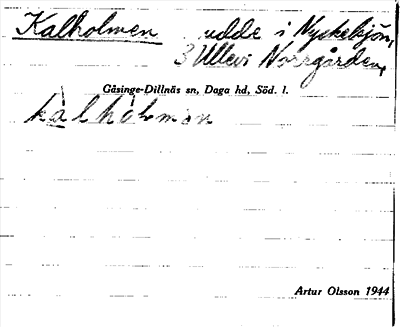 Kalholmen udde i Nyckelsjön,
3 Ullevi Norrgården,
Gåsinge-Dillnäs sn, Daga hd, Söd. l.
kàlhòlmən
Artur Olsson 1944